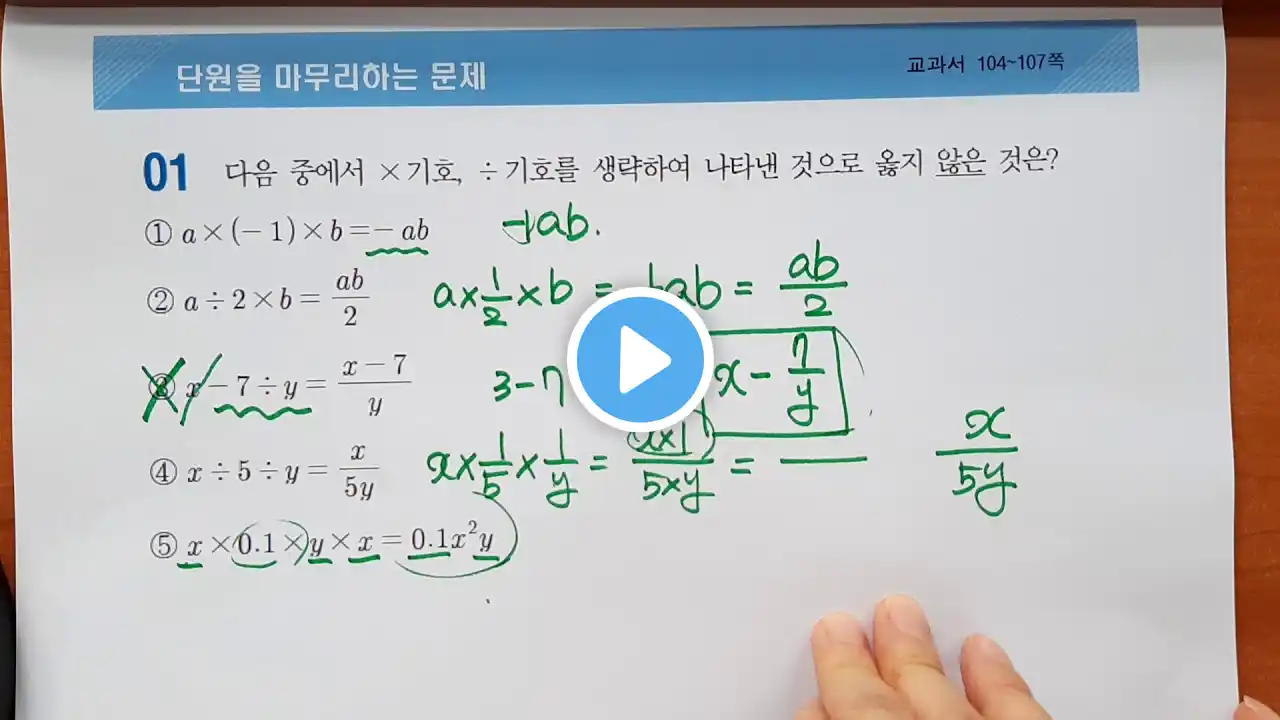 단원을 마무리하는 문제
교과서 104~107쪽
01 다음 중에서 ×기호, ÷기호를 생략하여 나타낸 것으로 옳지 않은 것은?
① a×(-1)×b=-ab -1ab.
② a÷2×b=ab/2 a×1/2×b = ab = ab/2
③ x-7÷y=(x-7)/y 3-7 x-7/y
④ x÷5÷y=x/5y x×1/5×1/y = x×1/5×y = x/5y
⑤ x×0.1×y×x=0.1x²y